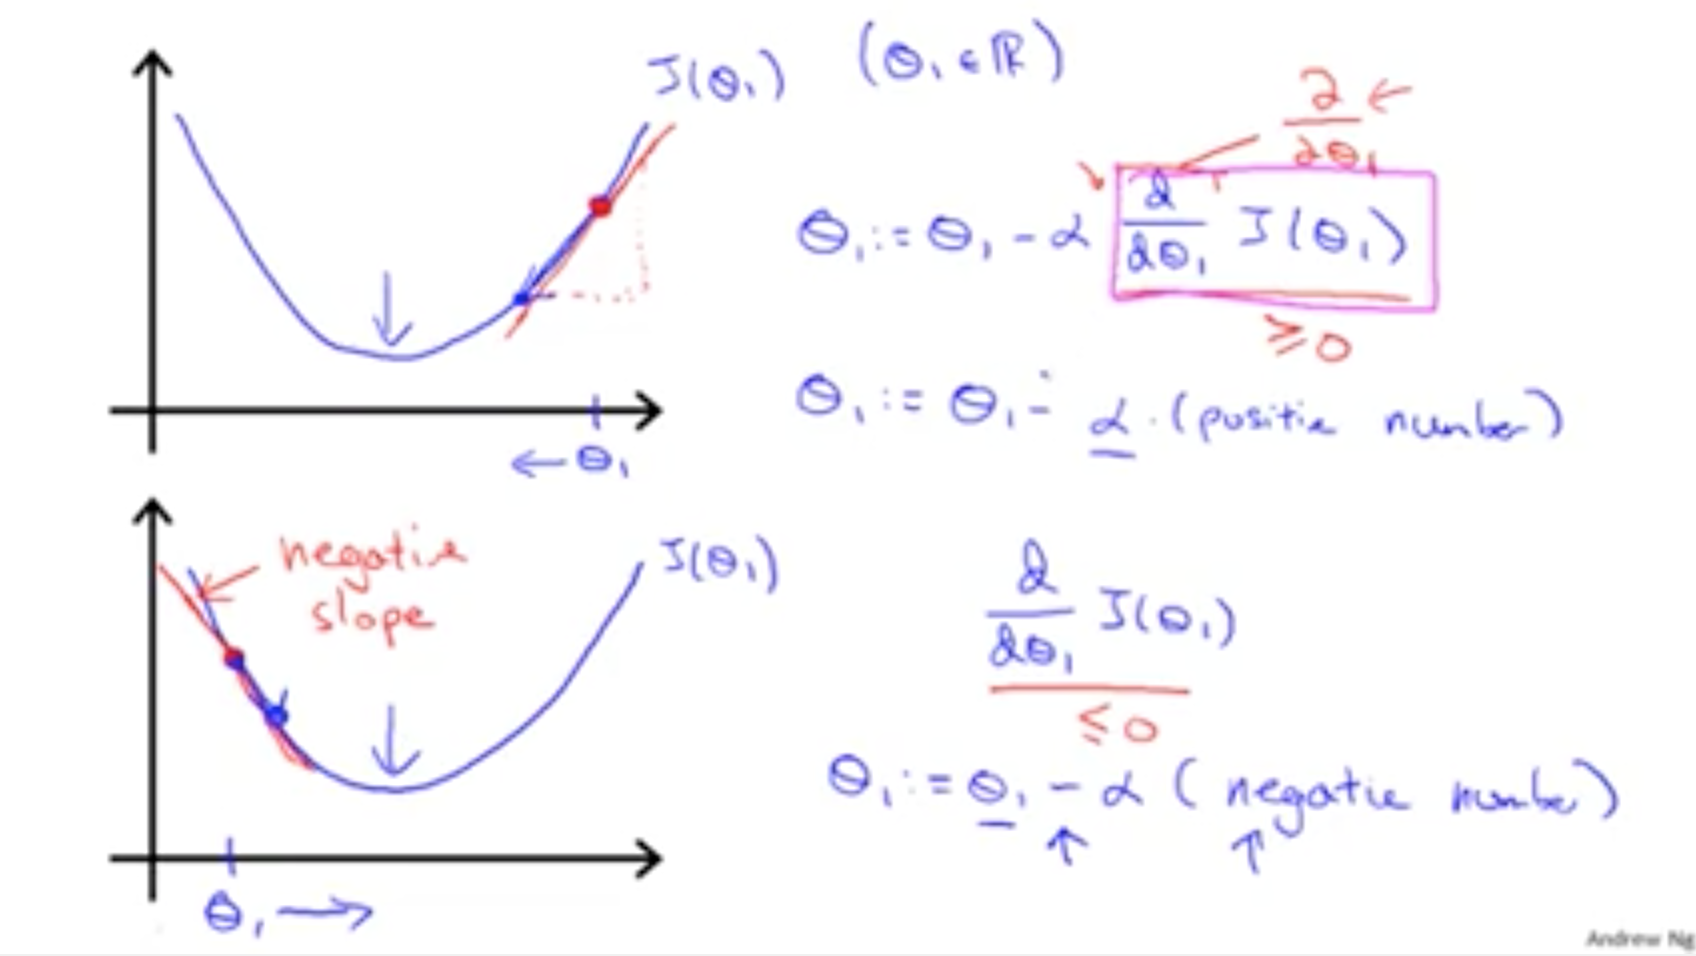 J(θ₁) (θ₁ ∈ ℝ)
∂
∂θ₁
θ₁ := θ₁ - α d/dθ₁ J(θ₁)
≥ 0
θ₁ := θ₁ - α · (positive number)
← θ₁
negative
slope
J(θ₁)
d/dθ₁ J(θ₁)
≤ 0
θ₁ := θ₁ - α (negative number)
θ₁ →
Andrew Ng